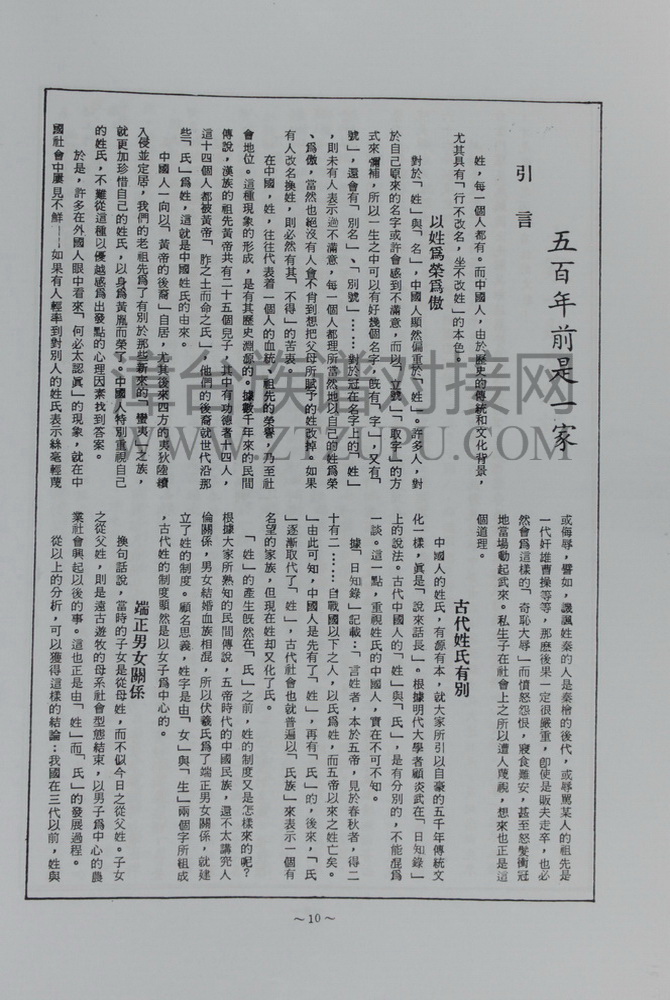 五百年前是一家
引言
姓，每一個人都有。而中國人，由於歷史的傳統和文化背景，
尤其具有「行不改名，坐不改姓」的本色。
以姓爲榮爲傲
對於「姓」與「名」，中國人顯然偏重於「姓」。許多人，對
於自己原來的名字或許會感到不滿意，而以「立號」、「取字」的方
式來彌補，所以一生之中可以有好幾個名字，旣有「字」，又有「
號」，還會有「別名」、「別號」……對於冠在名字上的「姓」
，則未有人表示過不滿意，每一個人都理所當然地以自己的姓爲榮
、爲傲，當然也絕沒有人會不肖到想把父母所賦予的姓改掉。如果
有人改名換姓，則必然有其「不得」的苦衷。
在中國，姓，往往代表着一個人的血統、祖先的榮譽，乃至社
會地位。這種現象的形成，是有其歷史淵源的。據數千年來的民間
傳說，漢族的祖先黃帝共有二十五個兒子，其中有功德者十四人，
這十四個人都被黃帝「胙之土而命之氏」，他們的後裔就世代沿那
些「氏」爲姓，這就是中國姓氏的由來。
中國人一向以「黃帝的後裔」自居，尤其後來四方的夷狄陸續
入侵並定居，我們的老祖先爲了有別於那些新來的「蠻夷」之族，
就更加珍惜自己的姓氏，以身爲黃胤而榮了。中國人特別重視自己
的姓氏，不難從這種以優越感爲出發點的心理因素找到答案。
於是，許多在外國人眼中看來「何必太認眞」的現象，就在中
國社會中屢見不鮮——如果有人輕率到對別人的姓氏表示絲毫輕蔑
或侮辱，譬如，譏諷姓秦的人是秦檜的後代，或辱罵某人的祖先是
一代奸雄曹操等等，那麽後果一定很嚴重，卽使是販夫走卒，也必
然會爲這樣的「奇恥大辱」而憤怒怨恨，寢食難安，甚至怒髮衝冠
地當場動起武來。私生子在社會上之所以遭人蔑視，想來也正是這
個道理。
古代姓氏有別
中國人的姓氏，有源有本，就大家所引以自豪的五千年傳統文
化一樣，眞是「說來話長」。根據明代大學者顧炎武在「日知錄」
上的說法。古代中國人的「姓」與「氏」，是有分別的，不能混爲
一談。這一點，重視姓氏的中國人，實在不可不知。
據「日知錄」記載：「言姓者，本於五帝，見於春秋者，得二
十有二……自戰國以下之人，以氏爲姓，而五帝以來之姓亡矣。
」由此可知，中國人是先有了「姓」，再有「氏」的，後來，「氏
」逐漸取代了「姓」，古代社會也就普遍以「氏族」來表示一個有
名望的家族，但現在姓却又化了氏。
「姓」的產生旣然在「氏」之前，姓的制度又是怎樣來的呢？
根據大家所熟知的民間傳說，五帝時代的中國民族，還不太講究人
倫關係，男女結婚血族相混，所以伏羲氏爲了端正男女關係，就建
立了姓的制度。顧名思義，姓字是由「女」與「生」兩個字所組成
，古代姓的制度顯然是以女子爲中心的。
端正男女關係
換句話說，當時的子女是從母姓，而不似今日之從父姓。子女
之從父姓，則是遠古遊牧的母系社會型態結束，以男子爲中心的農
業社會興起以後的事。這也正是由「姓」而「氏」的發展過程。
從以上的分析，可以獲得這樣的結論：我國在三代以前，姓與
～10～
華合族譜对接网
WWW.ZPZUPU.COM